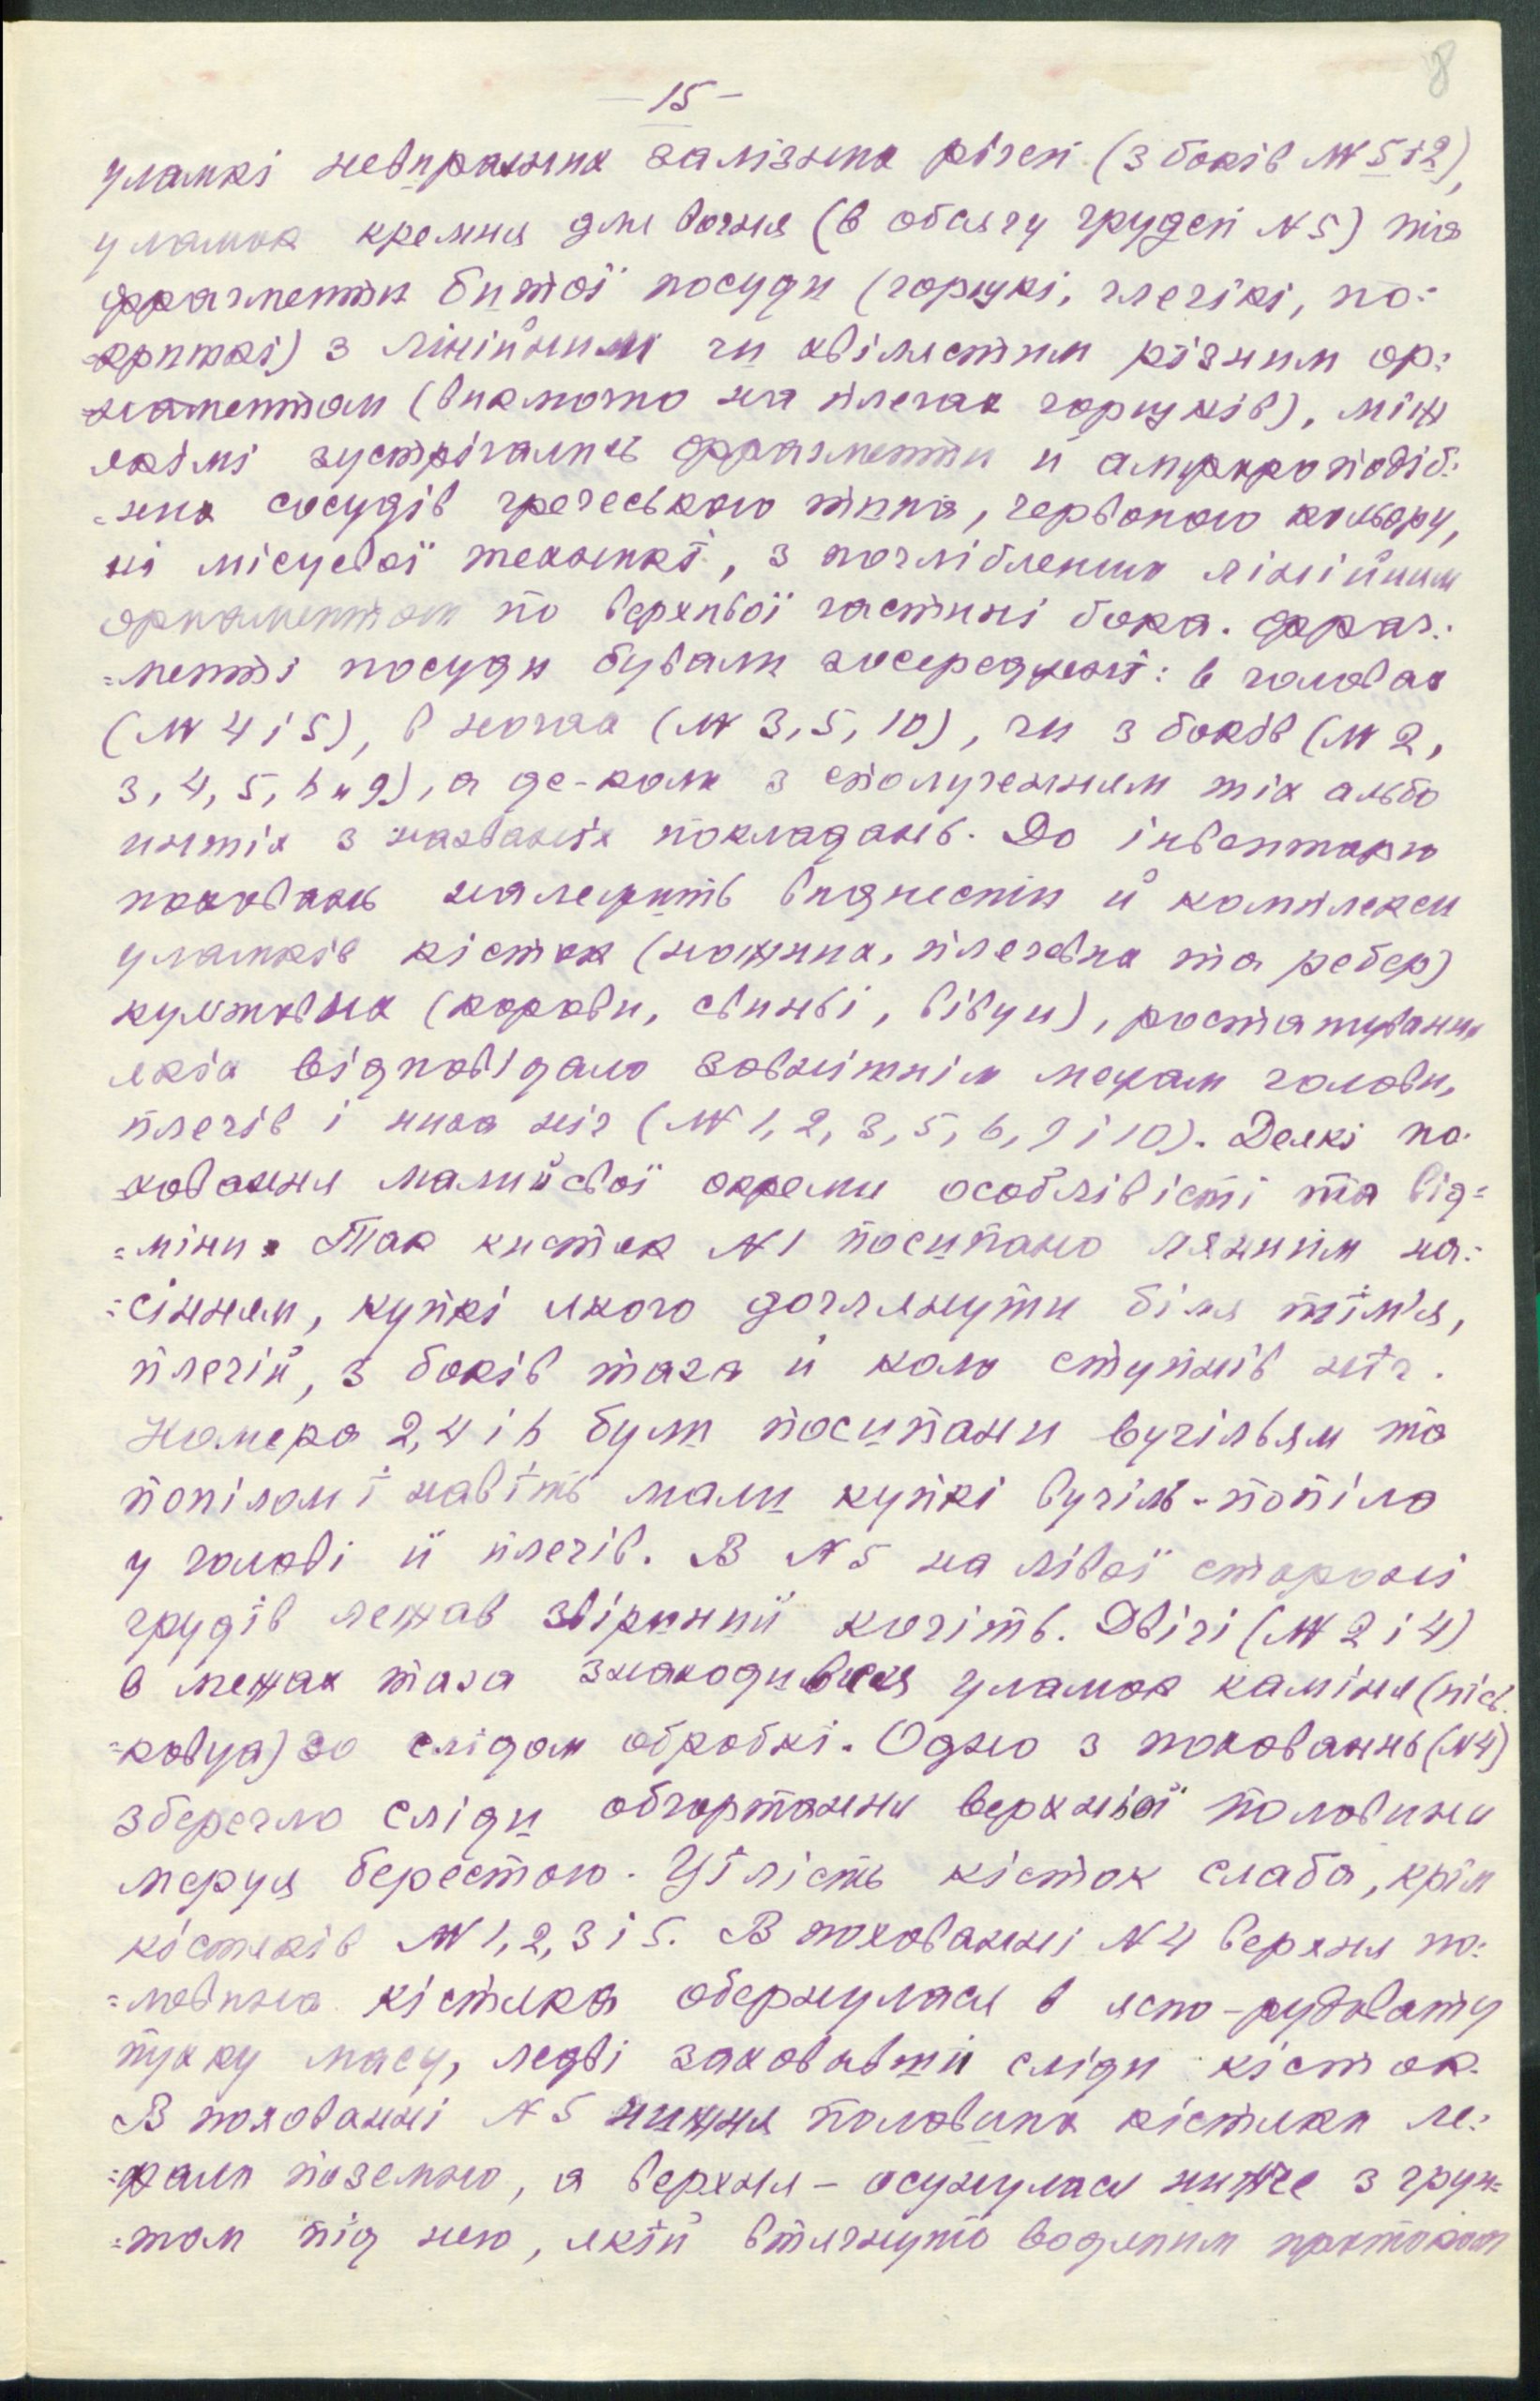 8
— 15 —
уламкі невиразних залізних річей (з боків №№ 5 і 2),
уламок кремня для вогня (в обсягу грудей № 5) та
фрагменти битої посуди (горщкі, глечікі, по=
=криткі) з лінійним чи хвілястим різним ор=
=наментом (виключно на плечах горщків), між
якімі зустрічались фрагменти й амфороподіб=
=них сосудів гречеського типа, червоного кольору,
ні місцевої технікі, з поглібленим лінійним
орнаментом по верхньої частині бока. Фраг=
=менті посуди бували зосереджені: в головах
(№№ 4 і 5), в ногах (№№ 3, 5, 10), чи з боків (№№ 2,
3, 4, 5, 6 и 9), а де-коли з сполученням тіх альбо
интіх з названіх покладань. До інвентарю
поховань належить віднести й комплекси
уламків кісток (ножних, плечевих та ребер)
культових (корови, свиньі, вівци), розташування
якіх відповідало зовнішнім межам голови,
плечів і низа ніг (№№ 1, 2, 3, 5, 6, 9 і 10). Деякі по=
=ховання мали й свої окреми особлівісті та від=
=міни. Так кистяк № 1 посипано ляним на=
=сінням, купкі якого доглянути біля тім'я,
плечій, з боків таза й коло ступнів ніг.
Номера 2, 4 і 6 були посипани вугільям та
попілом і навіть мали купкі вугіль-попіла
у голові й плечів. В № 5 на лівої стороні
грудів лежав звіриний кігіть. Двічі (№№ 2 і 4)
в межах таза знаходився уламок каміня (піс=
=ковца) зо слідом обробкі. Одно з похованнь (№ 4)
зберегло сліди обгортання верхньої половини
мерця берестою. Цілість кісток слаба, крім
кістяків №№ 1, 2, 3 і 5. В похованні № 4 верхня по=
=ловина кістяка обернулася в ясно-рудовату
пухку масу, ледві заховавши сліди кісток.
В похованні № 5 нижня половина кістяка ле=
=жала поземно, а верхня – осунулася нижче з грун=
=том під нею, якій втягнуто водяним протоком